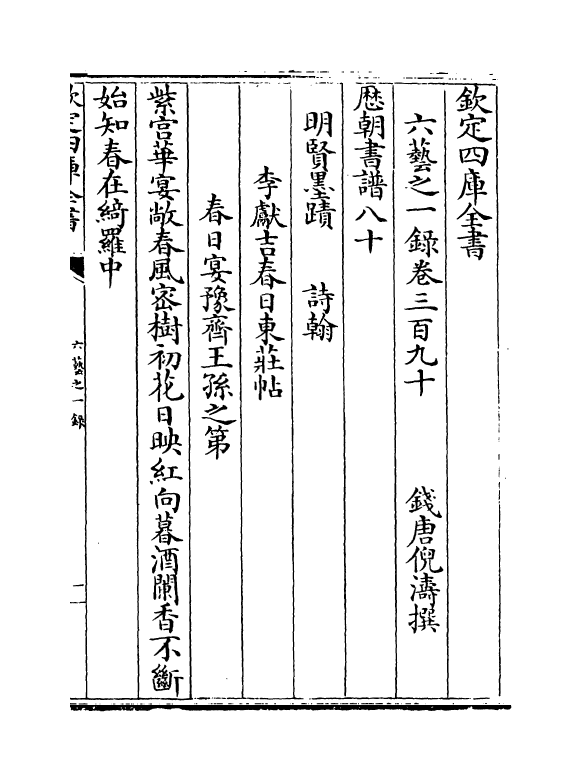 欽定四庫全書
六藝之一録卷三百九十
錢唐倪濤撰
歴朝書譜八十
明賢墨蹟　詩翰
李獻吉春日東莊帖
春日宴豫齊王孫之第
紫宫華宴敞春風密樹初花日映紅向暮酒闌香不斷
始知春在綺羅中
欽定四庫全書
六藝之一録
一